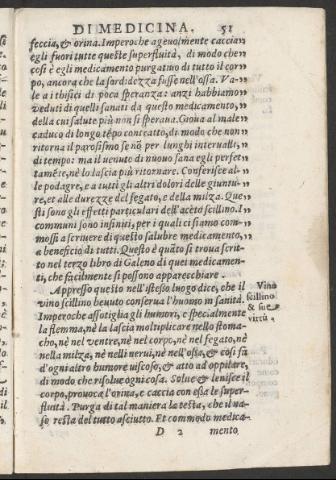 DI MEDICINA. 51
feccia, & orina. Imperoche ageuolmente caccia ,,
egli fuori tutte queste superfluità, di modo che ,,
cosi è egli medicamento purgatiuo di tutto il cor ,,
po, ancora che la sordidezza fusse nell'ossa. Va- ,,
le a i thisici di poca speranza: anzi habbiamo ,,
veduti di quelli sanati da questo medicamento, ,,
della cui salute più non si speraua. Gioua al male ,,
caduco di longo tẽpo contratto, di modo che non ,,
ritorna il parosismo se nõ per lunghi interualli, ,,
di tempo: ma il uenuto di nuouo sana egli perfet ,,
tamẽte, nè lo lascia più ritornare. Conferisce al- ,,
le podagre, e a tutti gli altri dolori delle giuntu- ,,
re, et alle durezze del fegato, e della milza. Que ,,
sti sono gli effetti particulari dell'aceto scillino. I ,,
communi sono infiniti, per i quali ci siamo com- ,,
mossi a scriuere di questo salubre medicamento, ,,
a beneficio di tutti. Questo è quãto si troua scrit-
to nel terzo libro di Galeno di quei medicamen-
ti, che facilmente si possono apparecchiare.
Appresso questo nell'istesso luogo dice, che il
vino scillino beuuto conserua l'huomo in sanità.
Vino
scillino
& sue
virtù.
Imperoche assotiglia gli humori, e specialmente
la flemma, nè la lascia moltiplicare nello stoma-
cho, nè nel ventre, nè nel corpo, nè nel fegato, nè
nella milza, nè nelli nerui, nè nell'ossa, & cosi fà
d'ogni altro humore uiscoso, & atto ad oppilare,
di modo che risolue ogni cosa. Solue & lenisce il
corpo, prouoca l'orina, e caccia con essa le super-
fluità. Purga di tal maniera la testa, che il na-
so resta del tutto asciutto. Et commodo medica-
D 2 mento